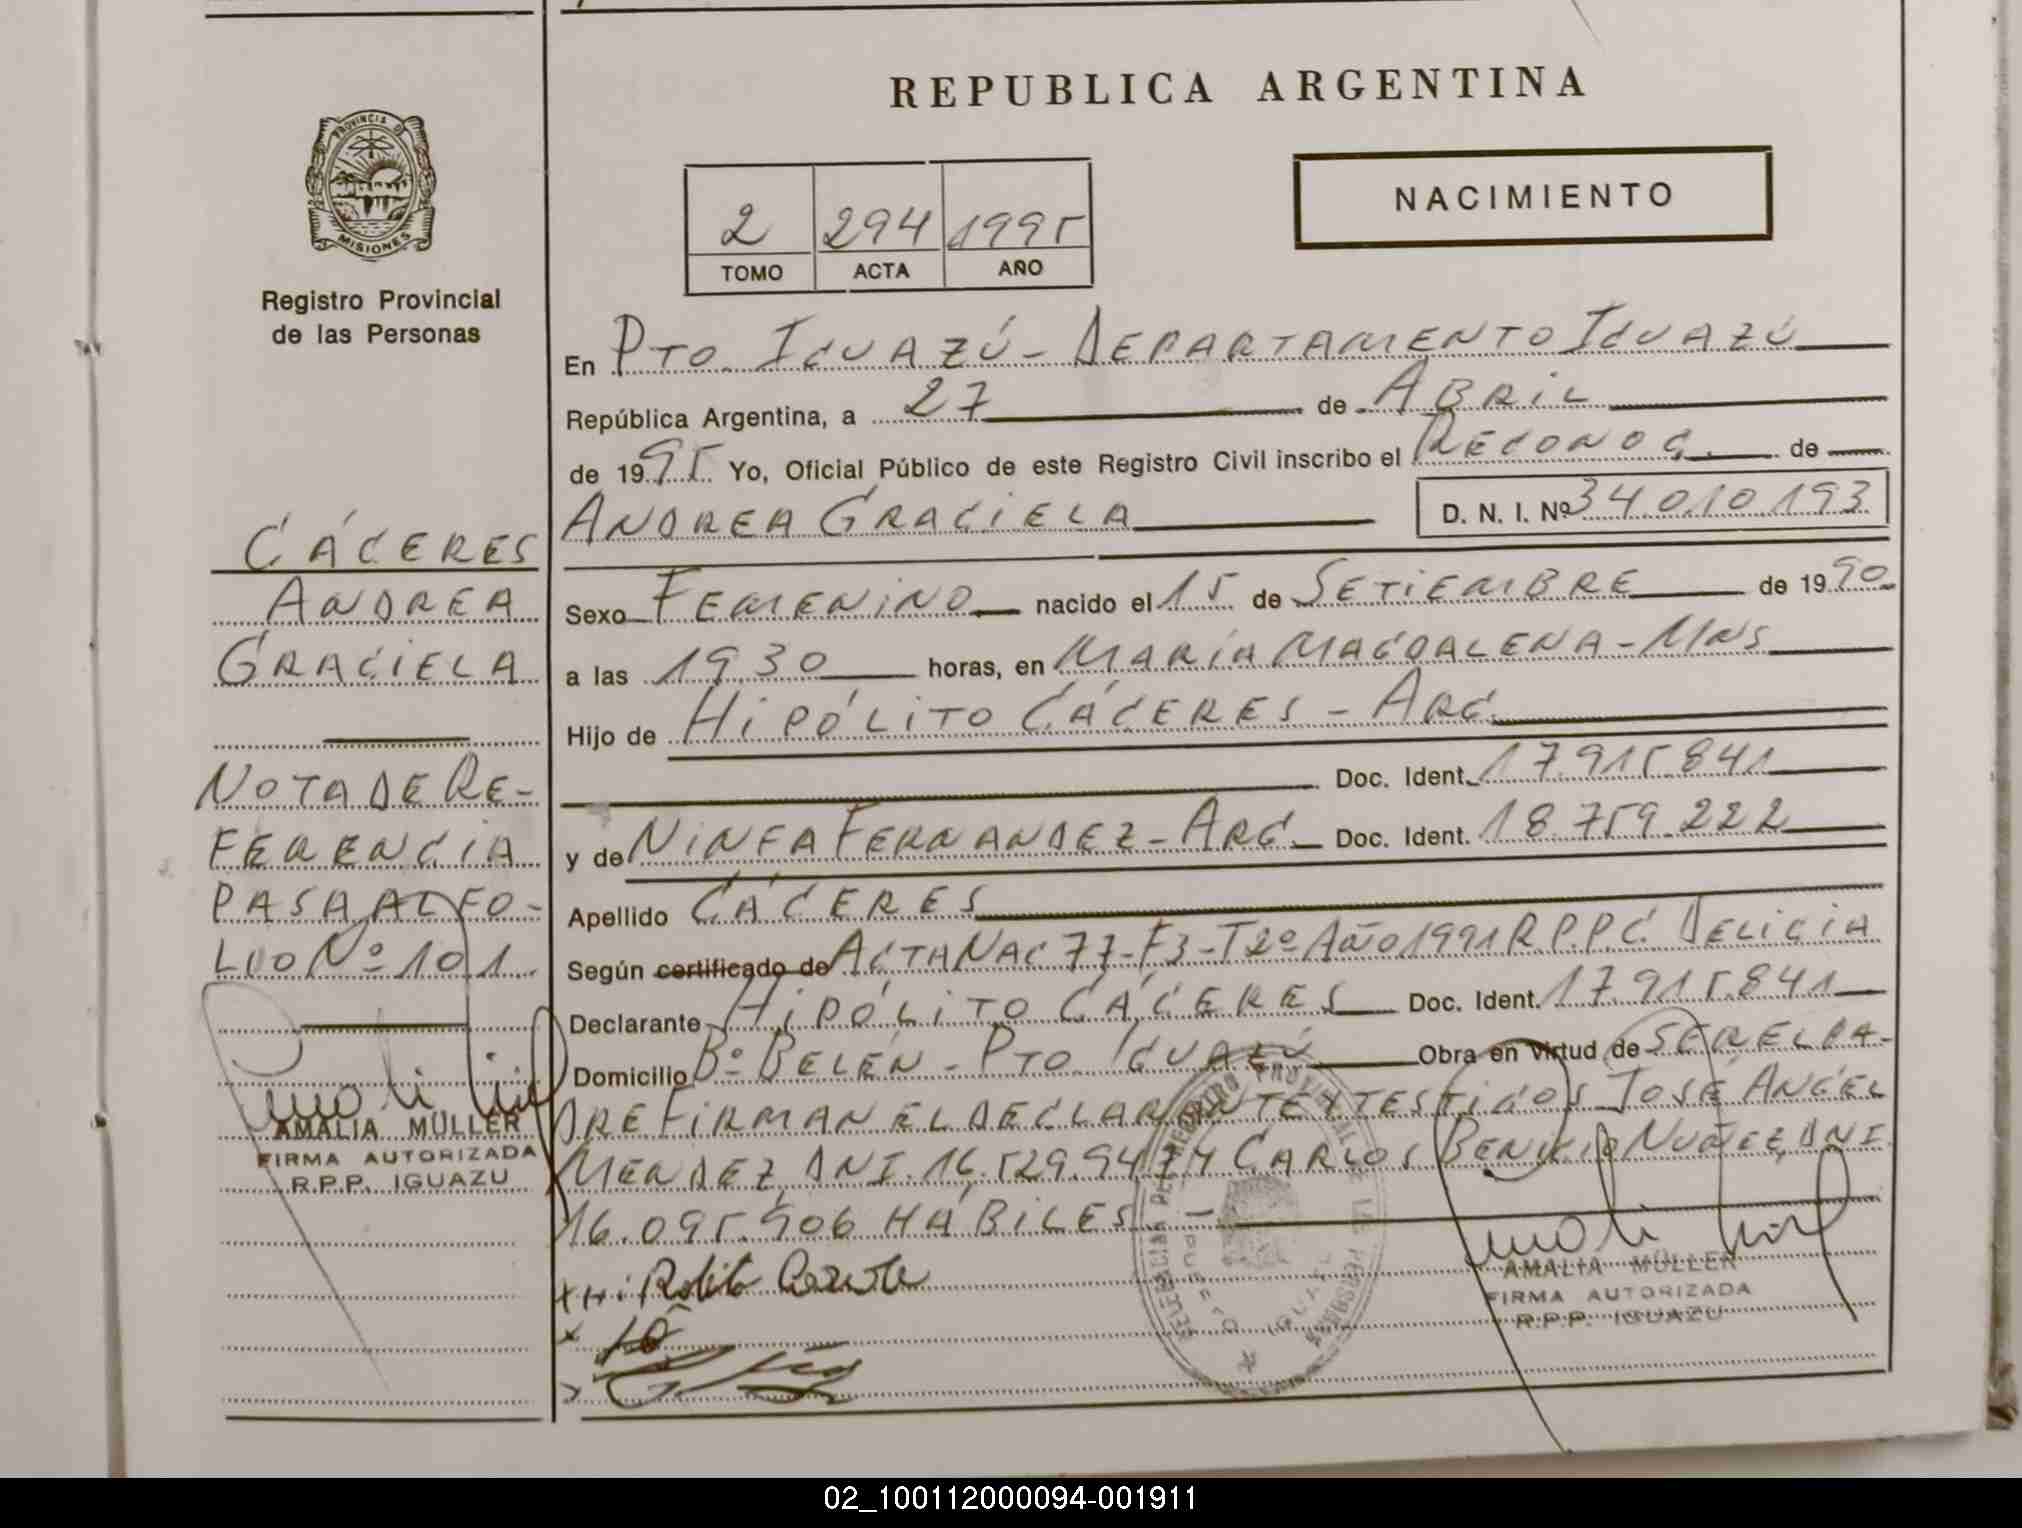 REPUBLICA ARGENTINA
PROVINCIA DE
MISIONES
Registro Provincial
de las Personas
NACIMIENTO
2 294 1995
TOMO ACTA AÑO
En Pto. Iguazú - Departamento Iguazú
República Argentina, a 27 de Abril
de 1995 Yo, Oficial Público de este Registro Civil inscribo el Reconoc. de
Andrea Graciela D. N. I. Nº 34.010.193
Sexo Femenino nacido el 15 de Setiembre de 1990
a las 19,30 horas, en María Magdalena - Mns
Hijo de Hipólito Cáceres - Arg.
Doc. Ident. 17.915.841
y de Ninfa Fernandez - Arg. Doc. Ident. 18.759.222
Apellido Cáceres
Según certificado de Acta Nac 77 - F3 - T2º Año 1991 R.P.P.C. Delicia
Declarante Hipólito Cáceres Doc. Ident. 17.915.841
Domicilio Bº Belén - Pto Iguazú Obra en virtud de ser el pa-
dre Firman el declarante y testigos José Angel
Mendez, DNI. 16.529.947 y Carlos Benicio Nuñez, DNI.
16.095.906 Hábiles
AMALIA MÜLLER
FIRMA AUTORIZADA
R.P.P. IGUAZU
Cáceres
Andrea
Graciela
Nota de Re-
ferencia
Pasa al Fo-
lio Nº 101.
AMALIA MÜLLER
FIRMA AUTORIZADA
R.P.P. IGUAZU
02_100112000094-001911